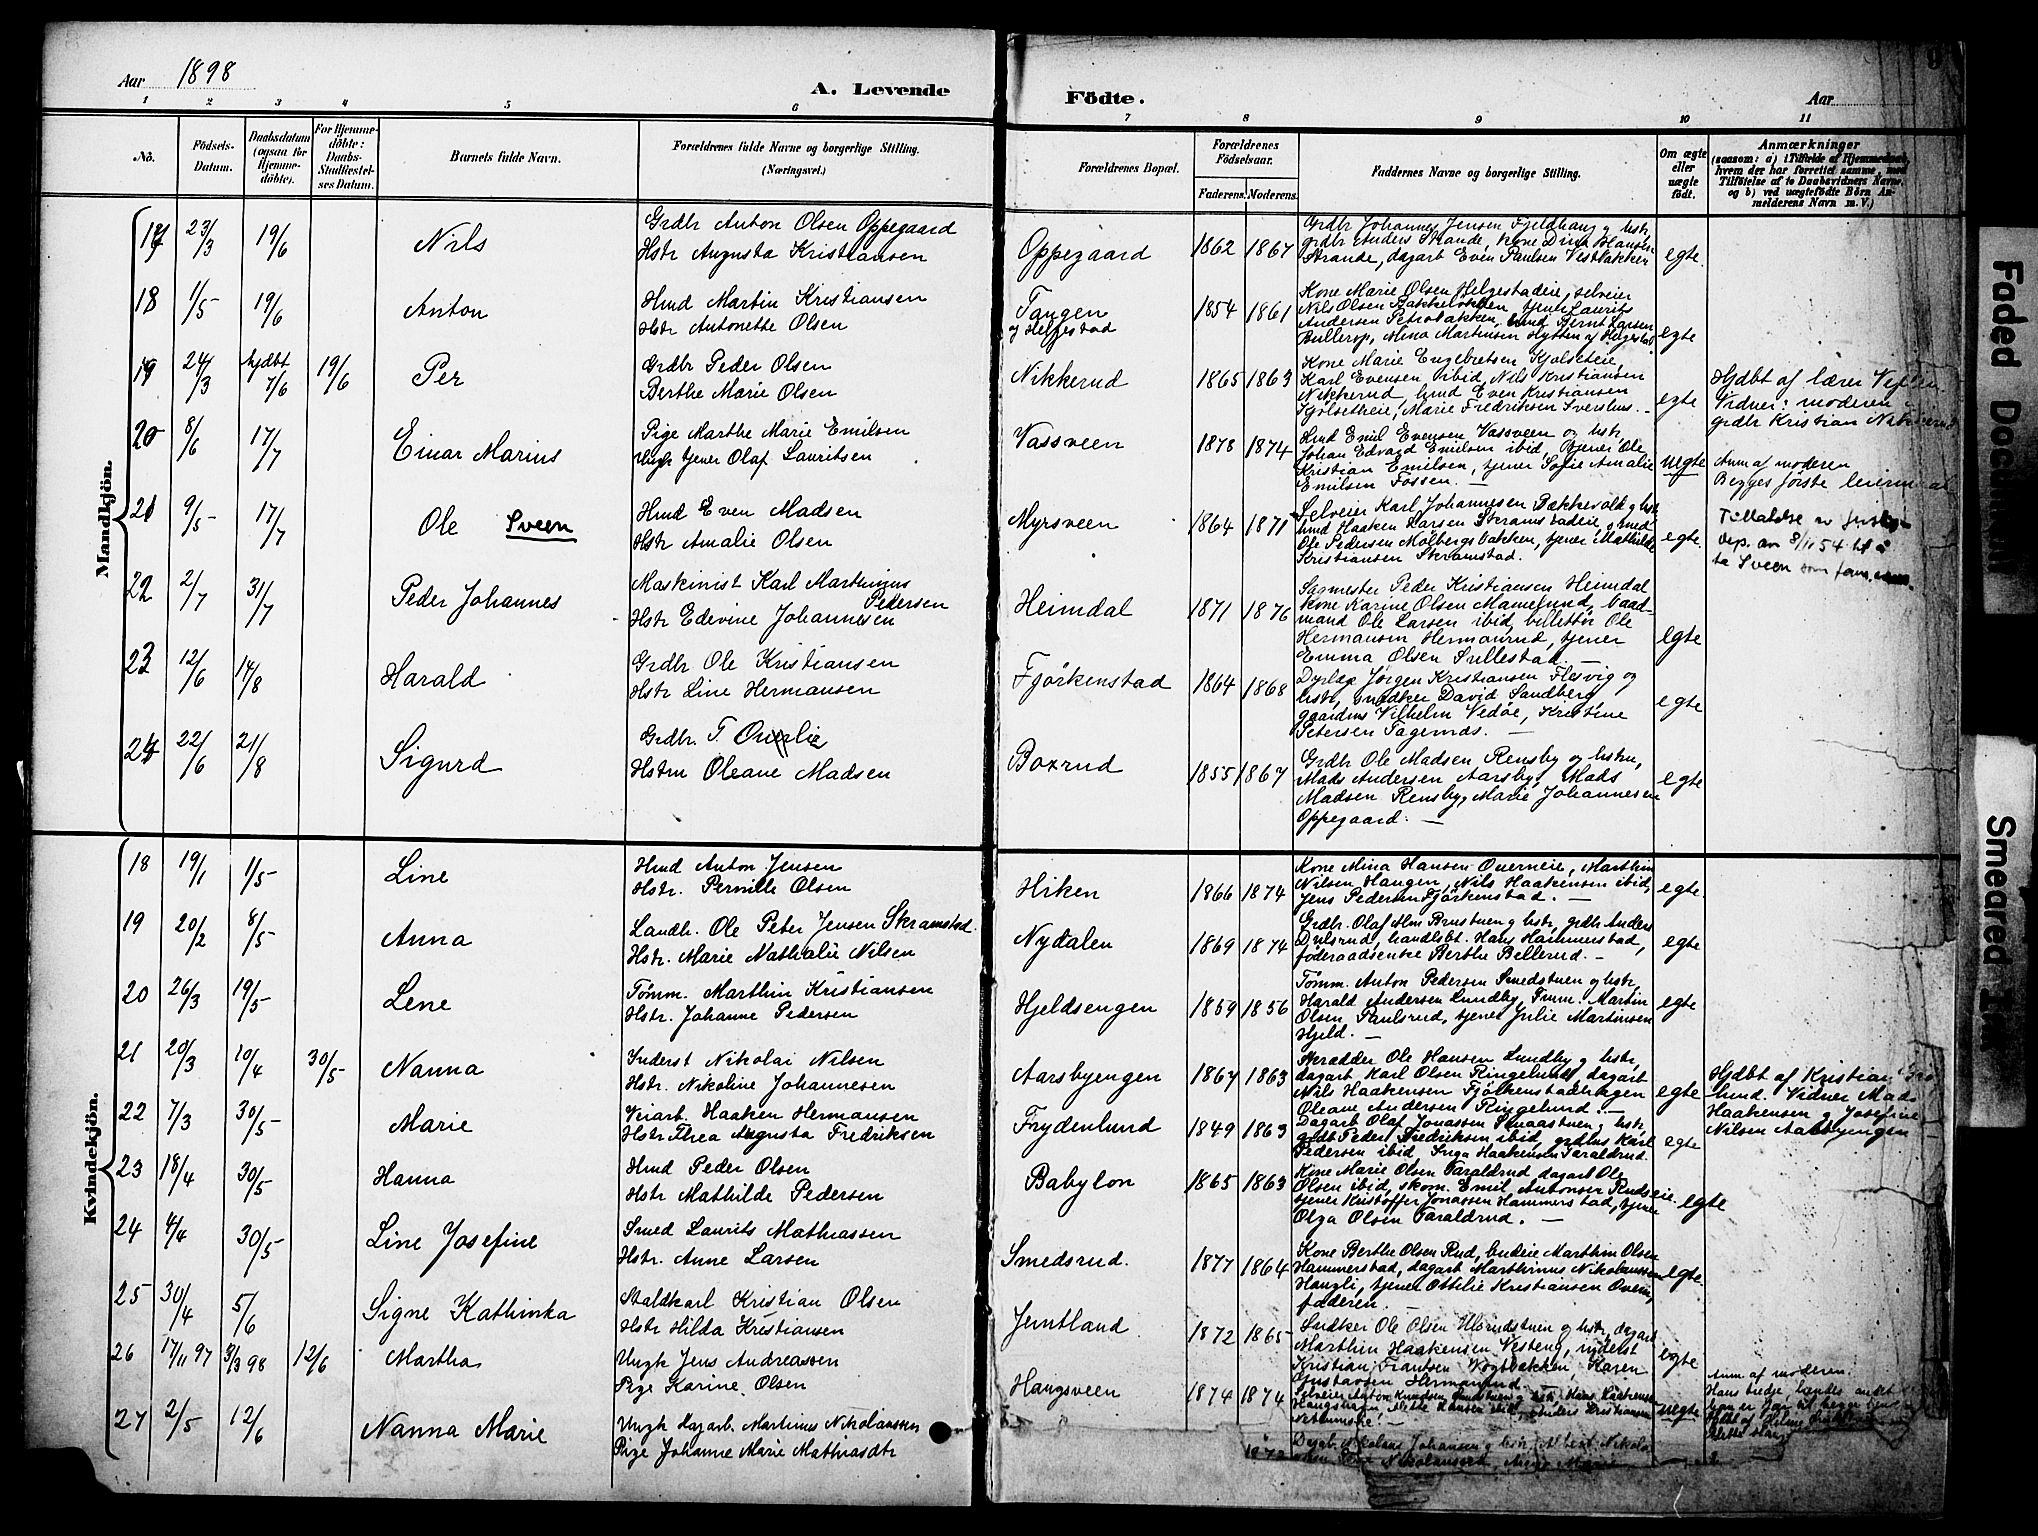 Aar 1898
A. Levende
Födte.
Aar
1 2 3 4 5 6 7 8 9 10 11
No.
Födsels-Datum.
Daabsdatum (ogsaa for Hjemme-döbte).
For Hjemme-döbte: Daabs-Stadfæstel-ses Datum.
Barnets fulde Navn.
Forældrenes fulde Navne og borgerlige Stilling. (Næringsvei.)
Forældrenes Bopæl.
Forældrenes Födselsaar.
Faderens. Moderens.
Faddernes Navne og borgerlige Stilling.
Om ægte eller uægte födt.
Anmærkninger
(saasom: a) i Tilfælde af Hjemmedaab,
hvem der har forrettet samme, med
Tilföielse af to Daabsvidners Navne,
og b) ved uægtefödte Börn An-
melderens Navn m. V.)
Mandkjön.
17 23/3 19/6 Nils
Grdbr Anton Olsen Oppegaard
Hstr Augusta Kristiansen
Oppegaard 1862 1867
Grdbr Johannes Jensen Fjeldhaug og hstr,
grdbr Anders Strande, kone Dina Hansen
Strande, dagarb Even Paulsen Vestbakken
egte.
18 1/5 19/6 Anton
Hmd Martin Kristiansen
Hstr Antonette Olsen
Tangen
1854 1861
Kone Marie Olsen Helgestadeie, selveier
Nils Olsen Bakkeløkken, tjener Laurits
Andersen Petrobakken, hmd Bernt Larsen
Bullerop, Mina Martinsen Hytten af Helgestad
egte
19 24/3 hjdbt 7/6 19/6 Per
Grdbr Peder Olsen
Berthe Marie Olsen
Nikkerud 1865 1863
Kone Marie Engebretsen Kjolseteie,
Karl Evensen ibid, Nils Kristiansen
Nikkerud, hmd Even Kristiansen
Kjolseteie, Marie Fredriksen Svershus. -
egte
Hjdbt af lærer
Vidner: moderen
grdbr Kristian
20 8/6 17/7 Einar Marius
Pige Marthe Marie Emilsen
Ungk tjener Olaf Lauritsen
Vassveen 1878 1874
Hmd Emil Evensen Vassveen og hstr,
Johan Edvard Emilsen ibid, tjener Ole
Kristian Emilsen, tjener Sofie Amalie
Emilsen Fossen. -
uegte
Anm af moderen
Begges første
21 9/5 17/7 Ole Sveen
Hmd Even Madsen
Hstr Amalie Olsen
Myrsveen 1864 1871
Selveier Karl Johannesen Bækkevold og hstr
hmd Haaken Larsen Skramstadeie, smed
Ole Pedersen Molbergsbakken, tjener Mathilde
Kristiansen Skramstad.
egte.
Tillatelse av
dep. av 8/11 54 til å
ta Sveen som fam.navn
22 2/7 31/7 Peder Johannes
Maskinist Karl Marthinius
Pedersen
Hstr Edevine Johannesen
Heimdal 1871 1876
Sagmester Peder Kristiansen Heimdal
kone Karine Olsen
mand Ole Larsen ibid, billettør Ole
Hermansen Hermanrud, tjener
Emma Olsen Sillestad.
egte
23 12/6 14/8 Harald
Grdbr Ole Kristiansen
Hstr Line Hermansen
Fjørkenstad 1864 1868
Dyrlæge Jørgen Kristiansen Flesvig og
hstr, snedker David Sandberg
gaardens Vilhelm Vedøe, Kristine
Petersen Fagernæs. -
egte
24 22/6 21/8 Sigurd
Grdbr. T. Overlie
Hstru Oleane Madsen
Boxrud 1855 1867
Grdbr Ole Madsen Rensby og hstru,
Mads Andersen Aarsby, Mads
Madsen Rensby, Marie Johannesen
Oppegaard. -
egte
Kvindekjön.
18 19/1 1/5 Line
Hmd Anton Jensen
Hstr. Pernille Olsen
Hiken 1866 1874
Kone Mina Hansen Overneie, Marthin
Nilsen Haugen, Nils Haakensen ibid,
Jens Pedersen Fjørkenstad. -
egte.
19 20/2 8/5 Anna
Landh. Ole Peter Jensen Skramstad.
Hstr. Marie Nathalie Nilsen
Nydalen 1869 1874
Grdbr. Olaf Brustuen og hstr, grdbr Anders
Dylsrud, handlsbt. Hans Hammerstad,
føderaadsenke Berthe Bellerud. -
egte
20 26/3 19/5 Lene
Tømm. Marthin Kristiansen
Hstr. Johanne Pedersen
Hjeldsengen 1859 1856
Tømm. Anton Pedersen Smedstuen og hstr,
Harald Andersen Lundby, Tmm. Martin
Olsen Paulsrud, tjener Julie Martinsen
Hjeld. -
egte
21 20/3 10/4 30/5 Nanna
Inderst Nikolai Nilsen
Hstr. Nikoline Johannesen
Aarsbyengen 1867 1863
Skrædder Ole Hansen Lundby og hstr,
dagarb Karl Olsen Ringelund, dagarb
Nils Haakensen Fjölkenstadhagen
Oleane Andersen Ringelund. -
egte
Hjdbt af Kristian
lund. Vidner Mads
Haakensen og Josefine
Nilsen Aarsbyengen
22 7/3 30/5 Marie
Veiarb. Haaken Hermansen
Hstr Thea Augusta Fredriksen
Frydenlund 1849 1863
Dagarb Olaf Jonassen Snaastuen og hstr,
grdb Peder Fredriksen ibid, grdbr Karl
Pedersen ibid, Inga Haakensen Taraldrud.
egte
23 18/4 30/5 Hanna
Hmd Peder Olsen
Hstr Mathilde Pedersen
Babylon 1865 1863
Kone Marie Olsen Taraldrud dagarb Ole
Olsen ibid, skom. Emil Antonsen Rudseie
tjener Kristoffer Jonassen Hammerstad, tjener
Olga Olsen Taraldrud. -
egte
24 4/4 30/5 Line Josefine
Smed Laurits Mathiassen
Hstr. Anne Larsen
Smedsrud. 1877 1864
Kone Berthe Olsen Rud, Marthin Olsen
Hammerstad, dagarb Marthinus Nikolaussen
Haugli, tjener Ottilie Kristiansen Overn,
faderen. -
egte.
25 30/4 5/6 Signe Kathinka
Staldkarl Kristian Olsen
Hstr Hilda Kristiansen
Jemtland 1872 1865
Snedker Ole Olsen og hstr, dagarb
Marthin Haakensen Vesteng, inderst
Kristian Frantsen Vogtbakken, Karen
Gustavsen Hermanrud
egte
26 17/11 97 3/3 98 12/6 Martha
Ungk Jens Andreassen
Pige Karine Olsen
Haugsveen 1874 1874
Selveier Anton Knudsen og hstr, Hans
Mette Hansen ibid, Anders Kristiansen
uegte
Anm af moderen
Hans tredje, hendes andet
27 2/5 12/6 Nanna Marie
Ungk dagarb. Martinus Nikolaussen
Pige Johanne Marie Mathiasdtr
1872
Dagarb. Nikolaus Johansen og hstr, Albert
Faded Document
Smeared Ink